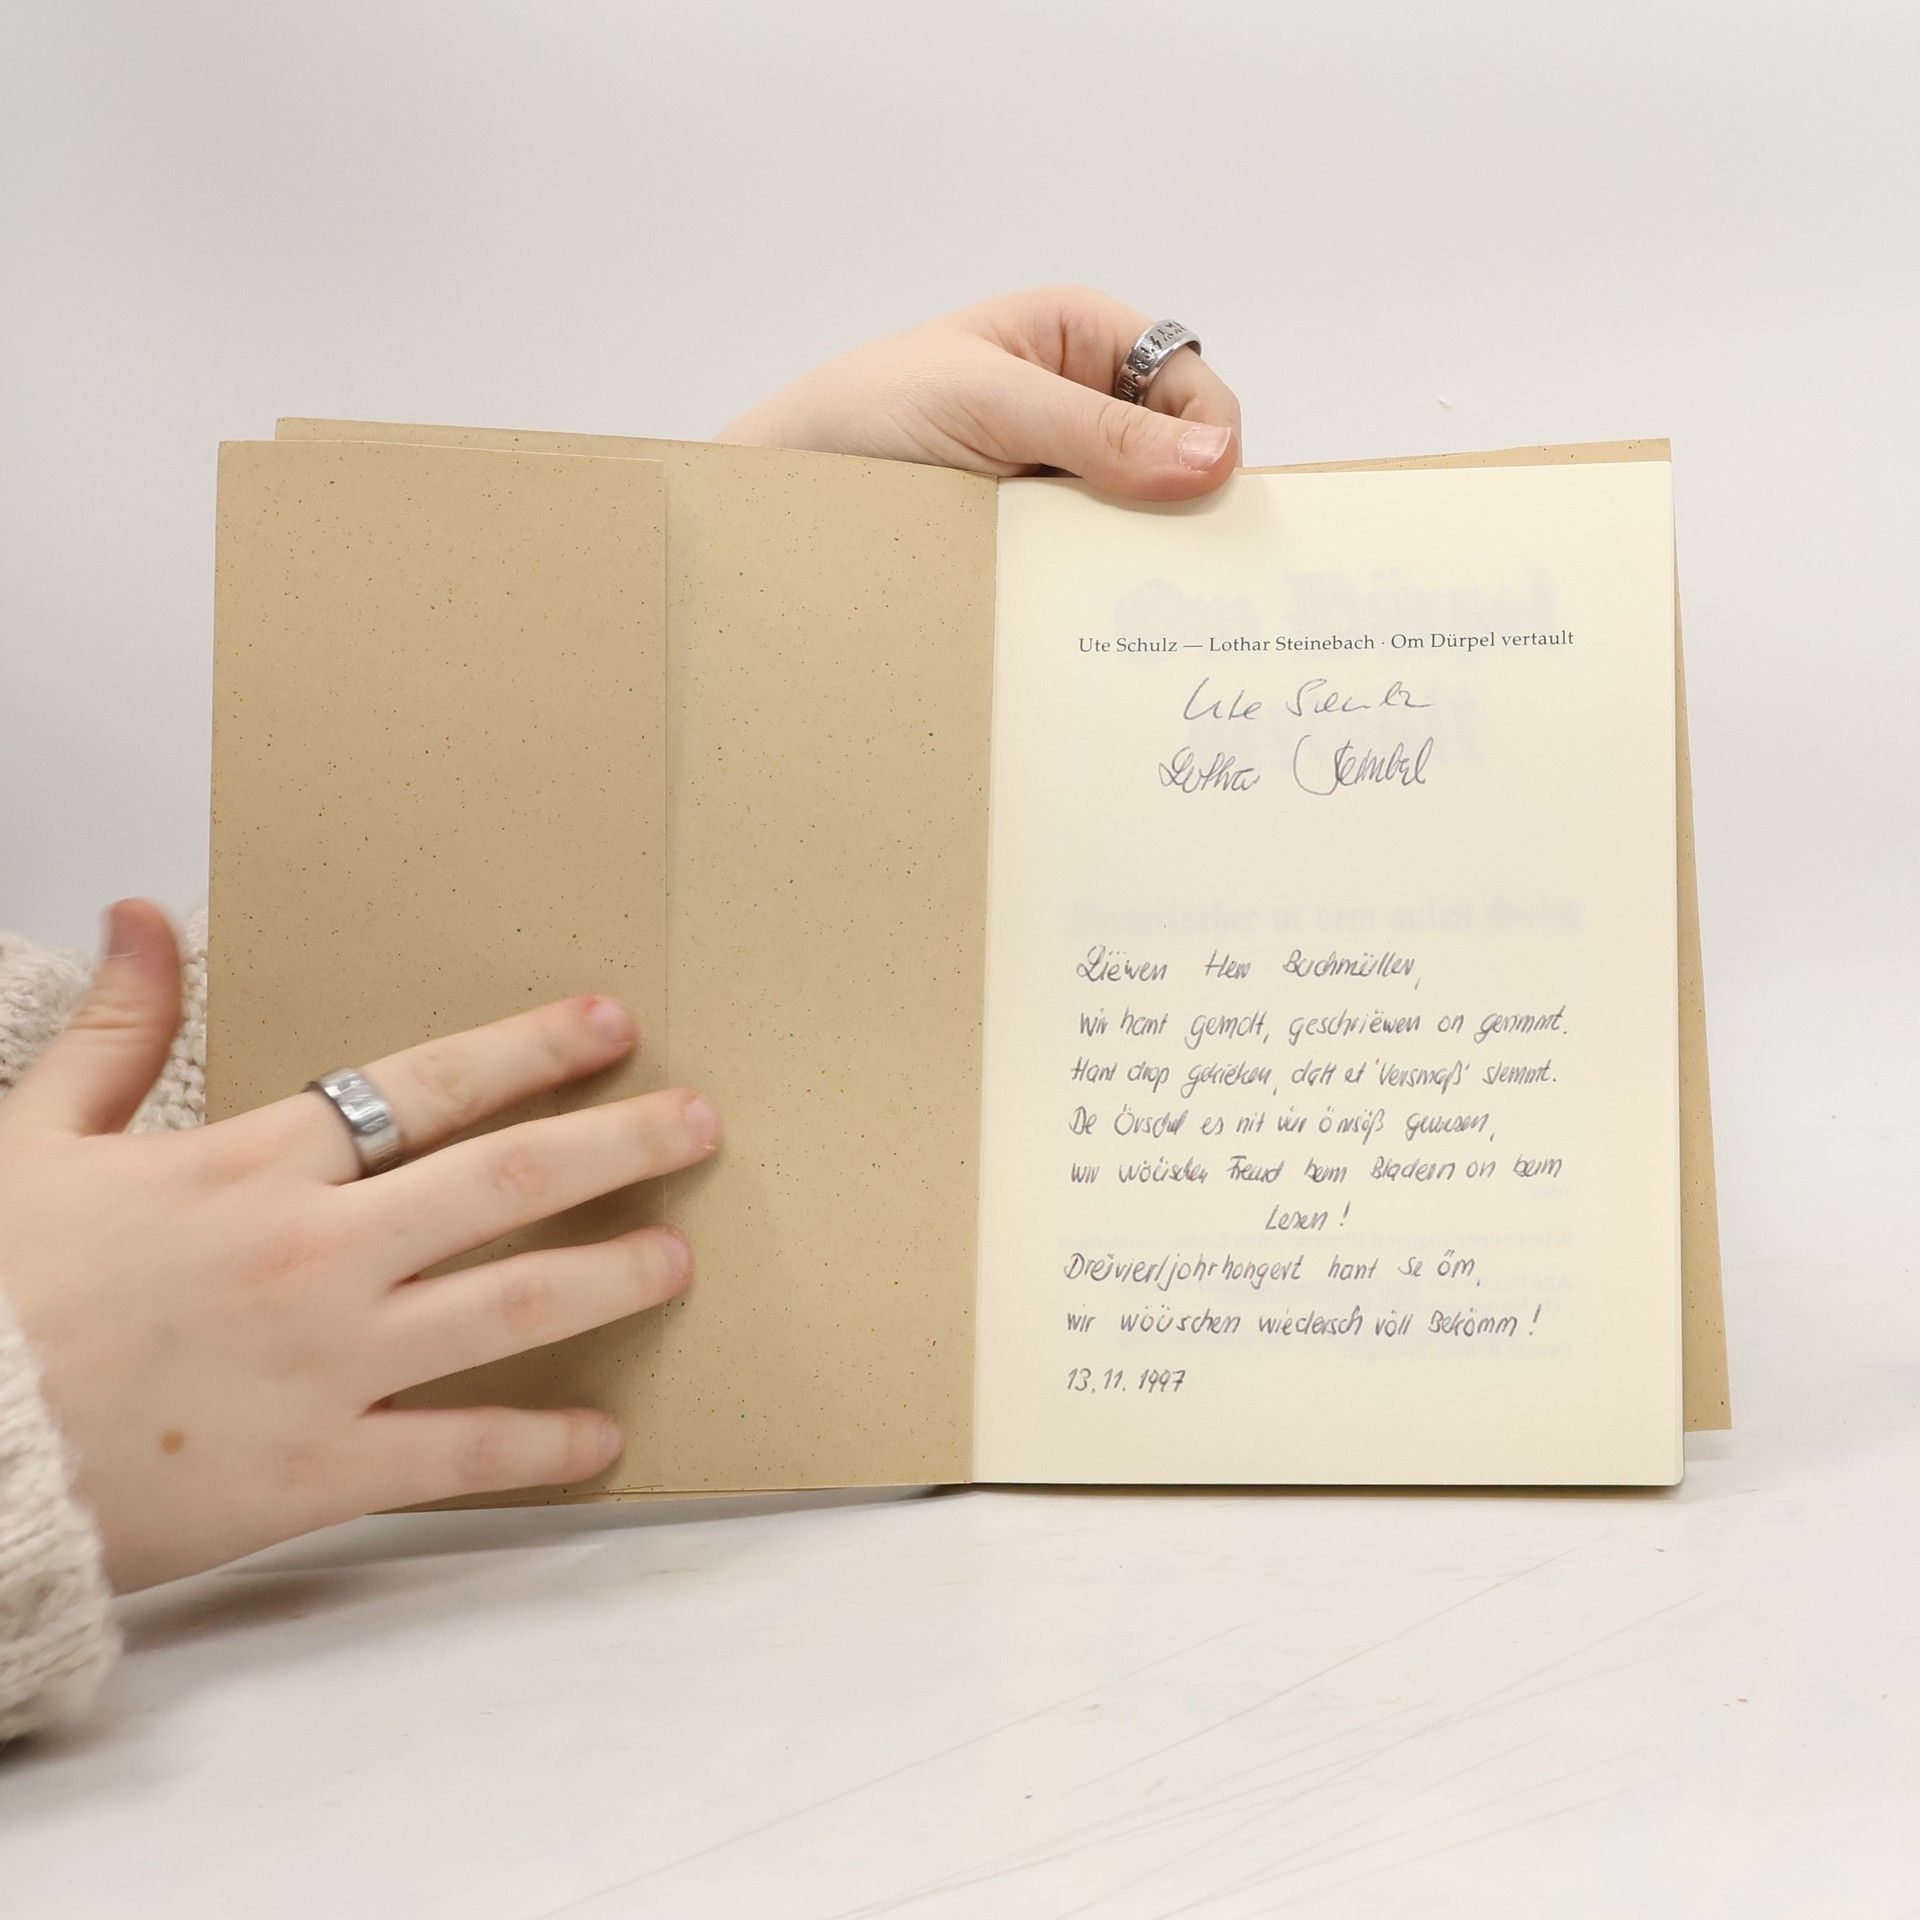 Ute Schulz — Lothar Steinebach · Om Dürpel vertault
Ute Schulz
Lothar
Liëwen Herr Buchmüller,
wir hant gemolt, geschriëwen on gerimmt.
Hant drop gekieken, datt et 'Versmaß' stemmt.
De es nit gewesen,
wir wöüschen Freud beim Bladern on beim
Lesen!
Dreivierljohrhongert hant Se öm,
wir wöüschen wiedersch völl Bekömm!
13.11.1997